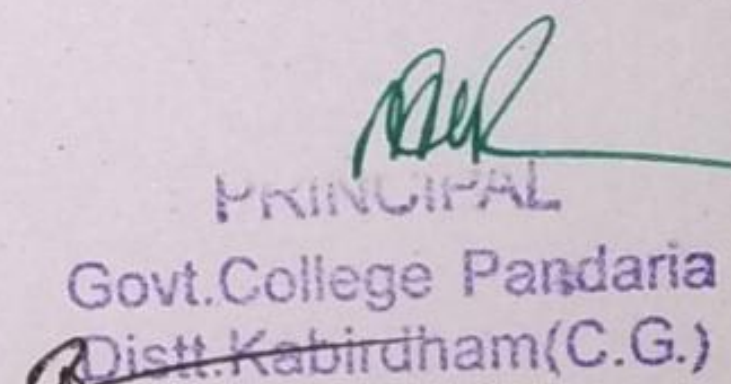 PRINCIPAL
Govt.College Pandaria
Distt.Kabirdham(C.G.)